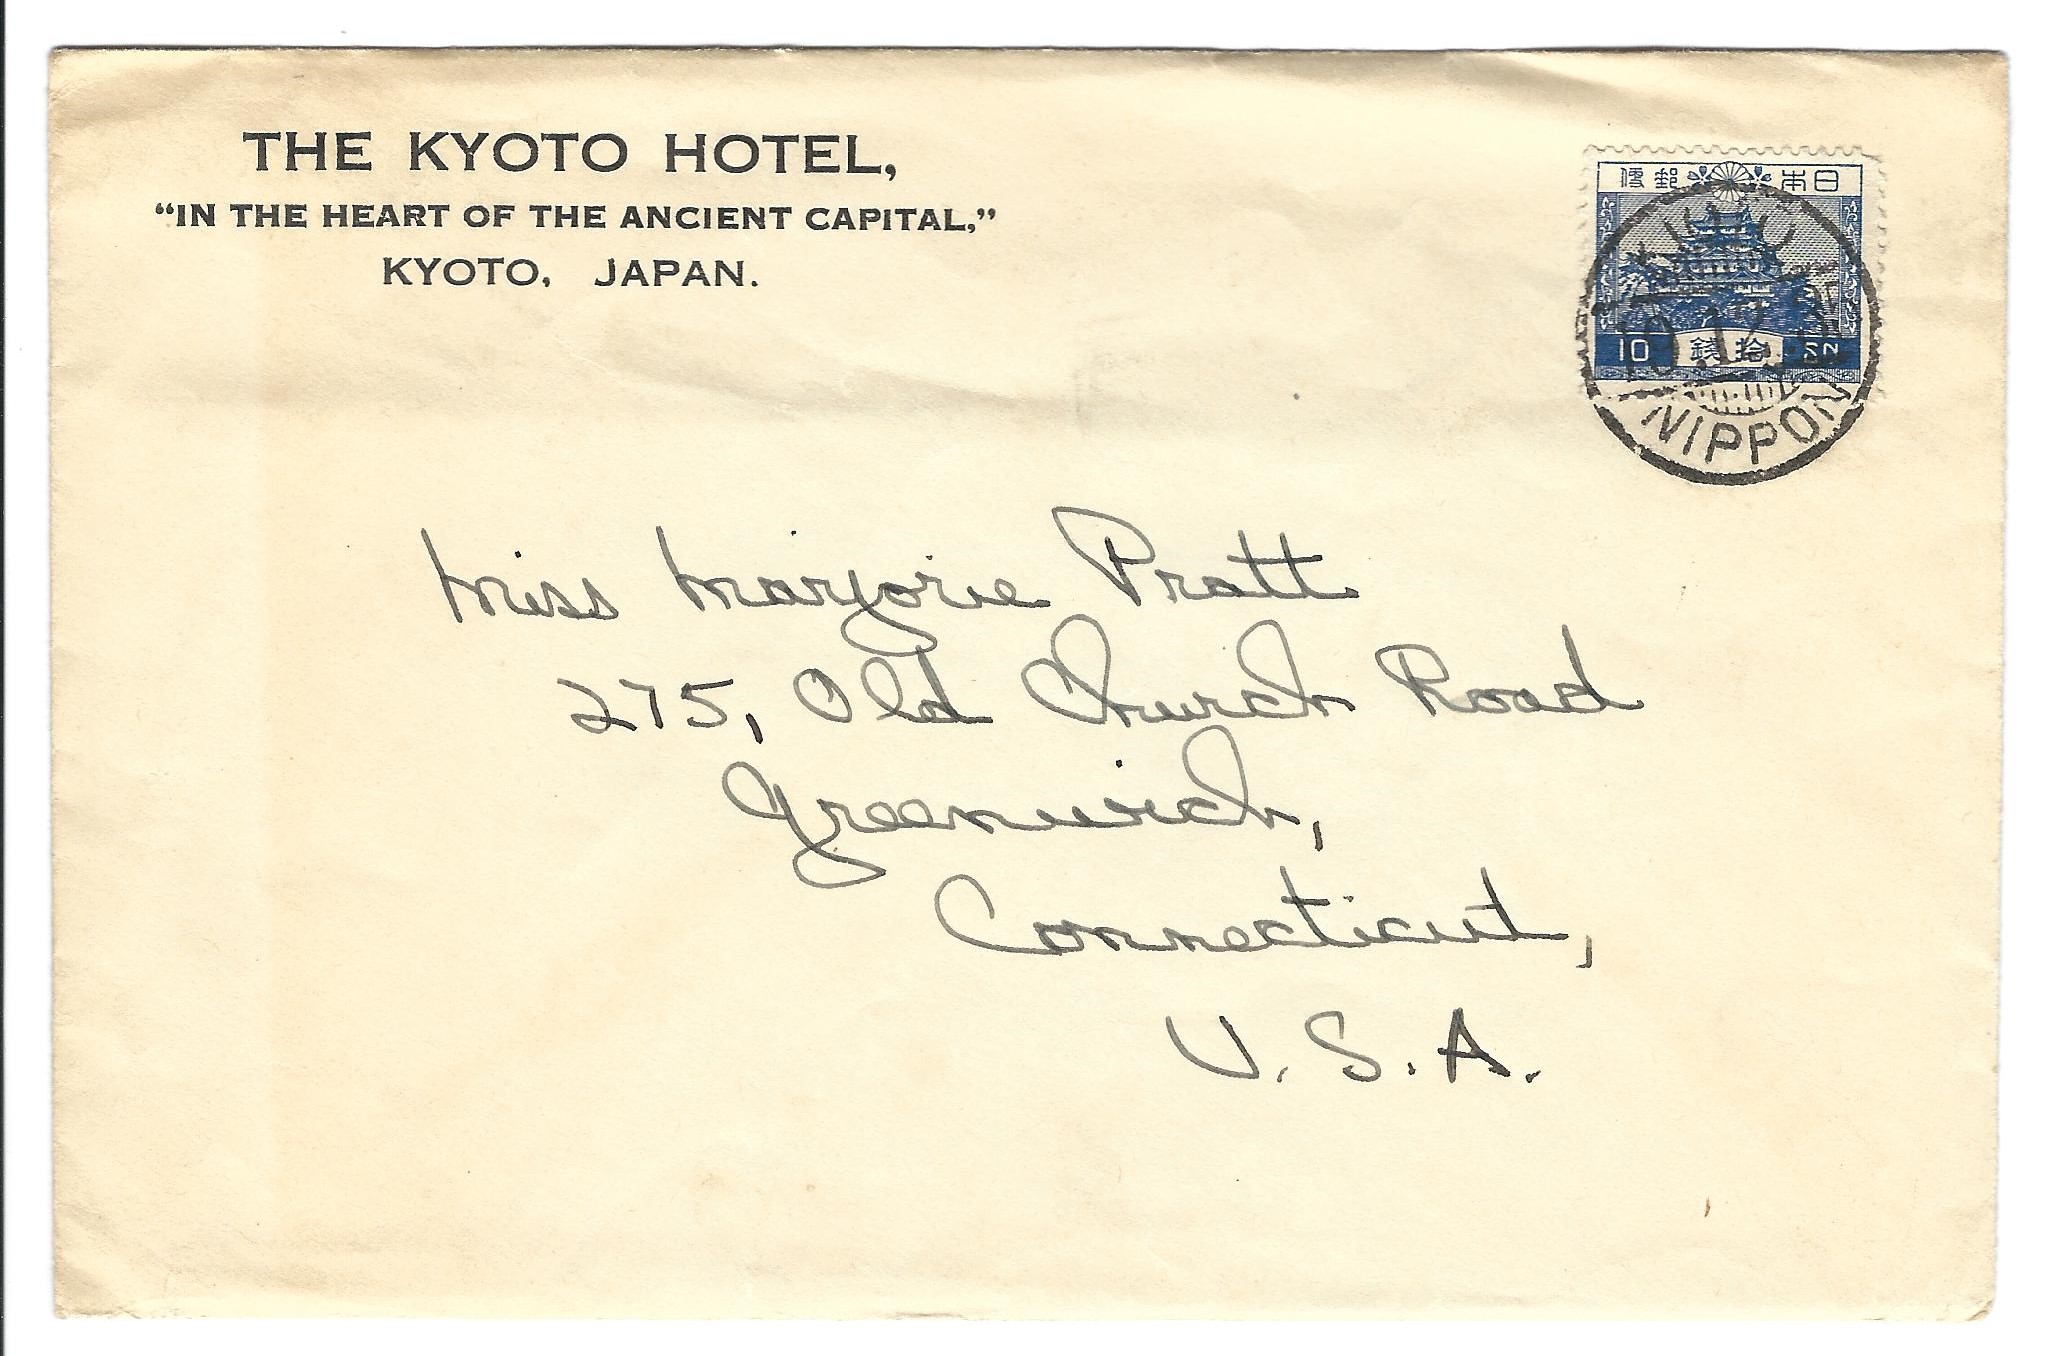 THE KYOTO HOTEL,
“IN THE HEART OF THE ANCIENT CAPITAL,”
KYOTO, JAPAN.
便郵 本日
10 錢拾 SN
NIPPON
Miss Marjorie Pratt
275, Old Church Road
Greenwich,
Connecticut,
U. S. A.